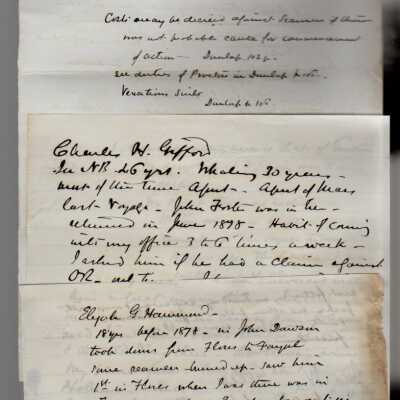 Costs may be decreed against Seamen if there
was not probable cause for commencement
of action — Dunlap
see duties of Proctor in Dunlap
Vexatious Suits
Dunlap
Charles H. Gifford
In N.B. 46 yrs. Whaling 30 years -
most of the time Agent - Agent of Mars
last voyage - John Foster was in the -
returned in June 1878 - Habit of coming
into my office 3 to 6 times a week -
I asked him if he had a claim against
Elijah G. Hammond -
18 yrs before 1878 - in John Dawson
took down from Flores to Fayal
some seamen - saw him
1st in Flores when I was there was in